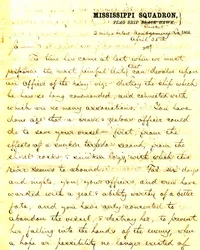 MISSISSIPPI SQUADRON,
FLAG SHIP BLACK HAWK,
April 25th
The time has come at last when we must
perform the most painful duty that can devolve upon
an Officer of the navy viz: destroy the ship which
he has so long commanded, and connected with
which are so many associations. You have
done all that a brave & zealous officer could
do to save your vessel— first, from the
effects of a sunken torpedo & second, from
the rocks & sunken logs with which this
river seems to abound. For six days
and nights, you, your officers, and men have
worked with a zeal & ability worthy of a better
fate, and you have only consented to
abandon the vessel, & destroy her, to prevent
her falling into the hands of the enemy, when
a hope or possibility no longer existed of